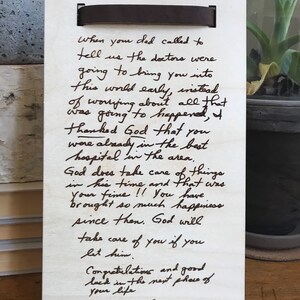 when your dad called to
tell us the doctors were
going to bring you into
this world early, instead
of worrying about all that
was going to happened, I
thanked God that you
were already in the best
hospital in the area.
God does take care of things
in his time and that was
your time !! You have
brought so much happiness
since then. God will
take care of you if you
let him.
Congratulations and good
luck in the next phase of
your life